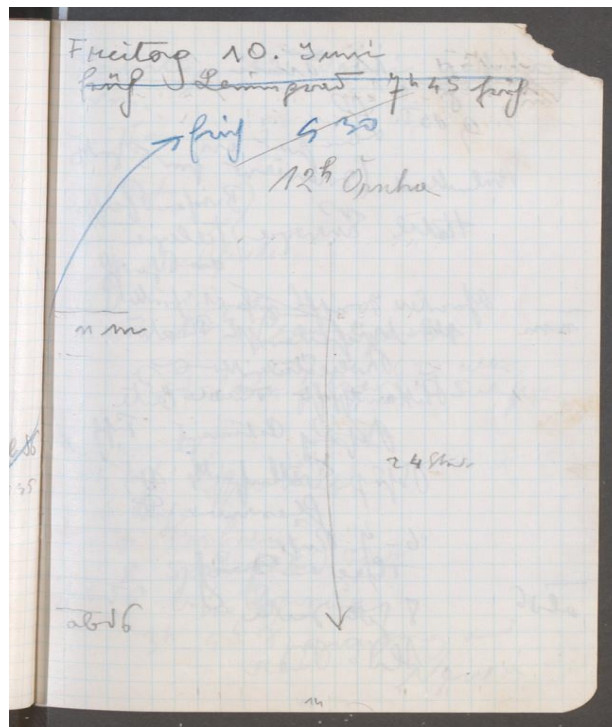 Freitag 10. Juni
früh Leningrad 7h 45 früh
früh 5 30
12h Orscha
n m
24 Std.
abds
14